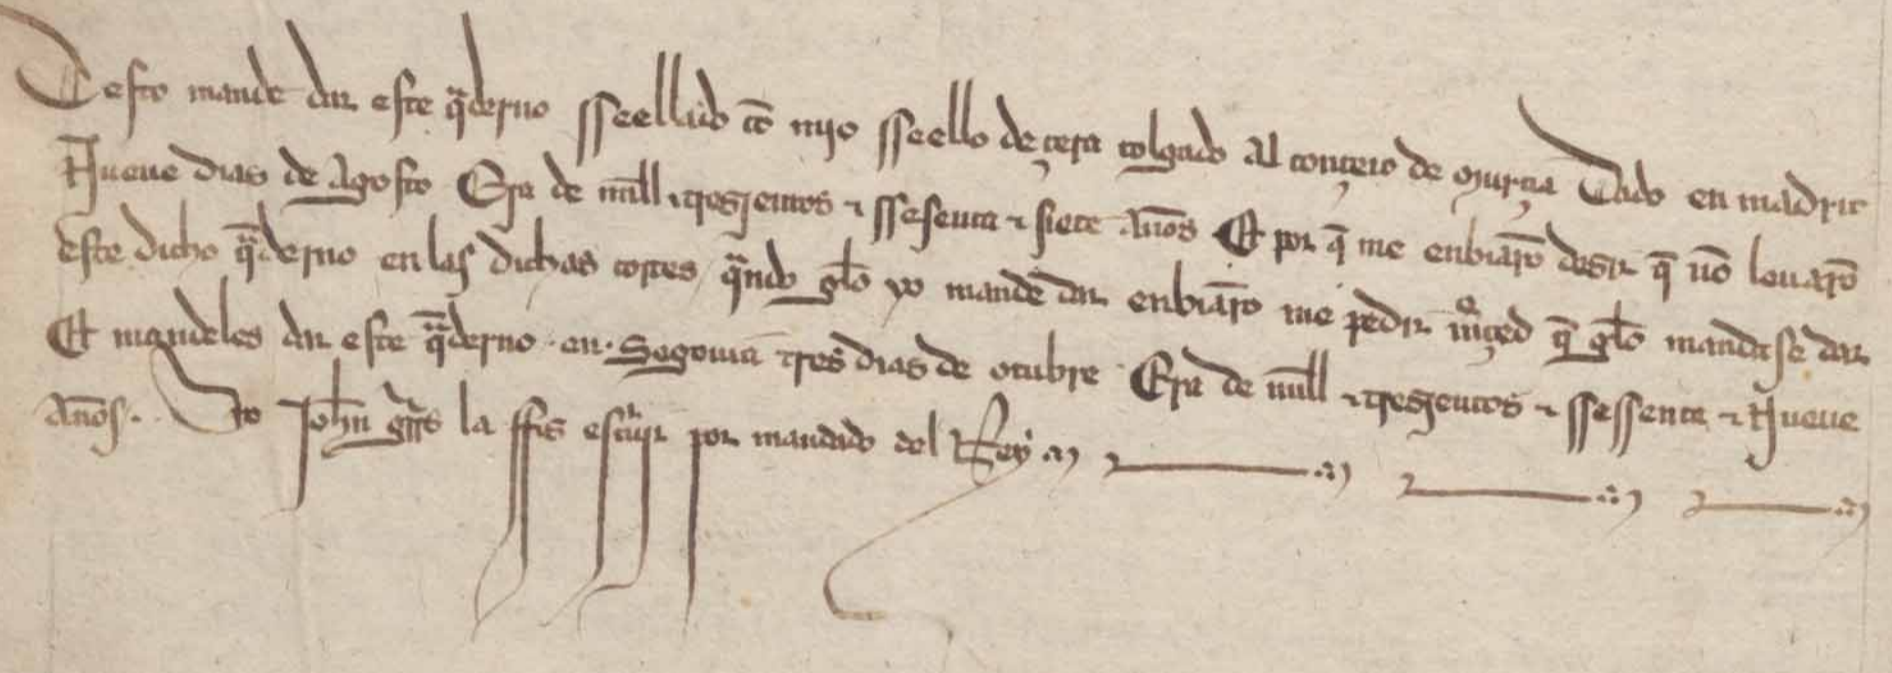 Desto mande dar este q̃derno sseellado cõ myo sseello de çera colgado al conçeio de murçia Dado en madrit
Nueue dias de Agosto Era de mill ⁊ trezientos ⁊ ssesenta ⁊ siete años Et por q̃ me enbiarõ dezir q̃ nõ leuarõ
este dicho q̃derno en las dichas cortes q̃ndo gelo yo mande dar enbiarõ me pedir mrçed q̃ gelo mandase dar
Et mandeles dar este q̃derno en Segouia tres dias de otubre Era de mill ⁊ trezientos ⁊ ssessenta ⁊ Nueue
años. Yo Johñ grrs la ffiz escriuir por mandado del Rey